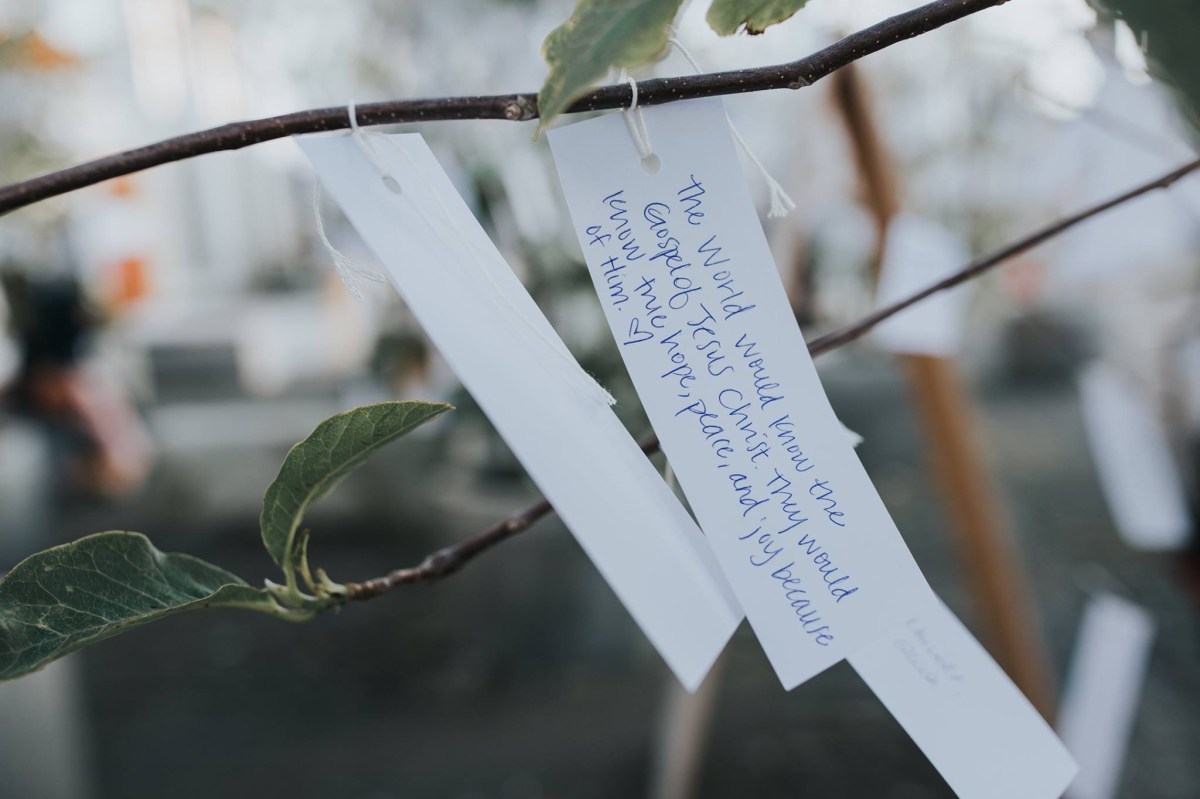 The World would know the
Gospel of Jesus Christ. They would
know true hope, peace, and joy because
of Him. ♡